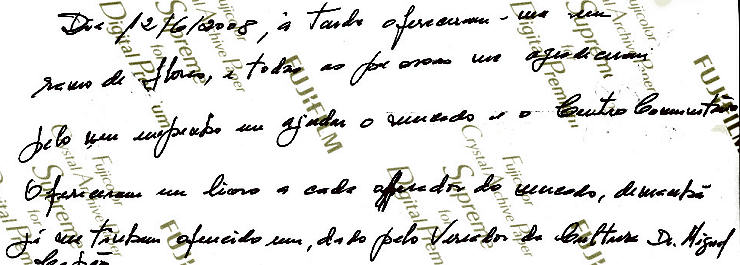 Dia 12/6/2008, à tarde ofereceram-me um
ramo de flores, e todas as pessoas me agradeceram
pelo meu empenho em ajudar o mercado e o Centro Comunitário
Ofereceram um livro a cada operador do mercado, de manhã
já me tinham oferecido um, dado pelo Vereador da Cultura Dr. Miguel
Fujicolor
Crystal Archive Paper
Supreme
for
Digital Premium
FUJIFILM